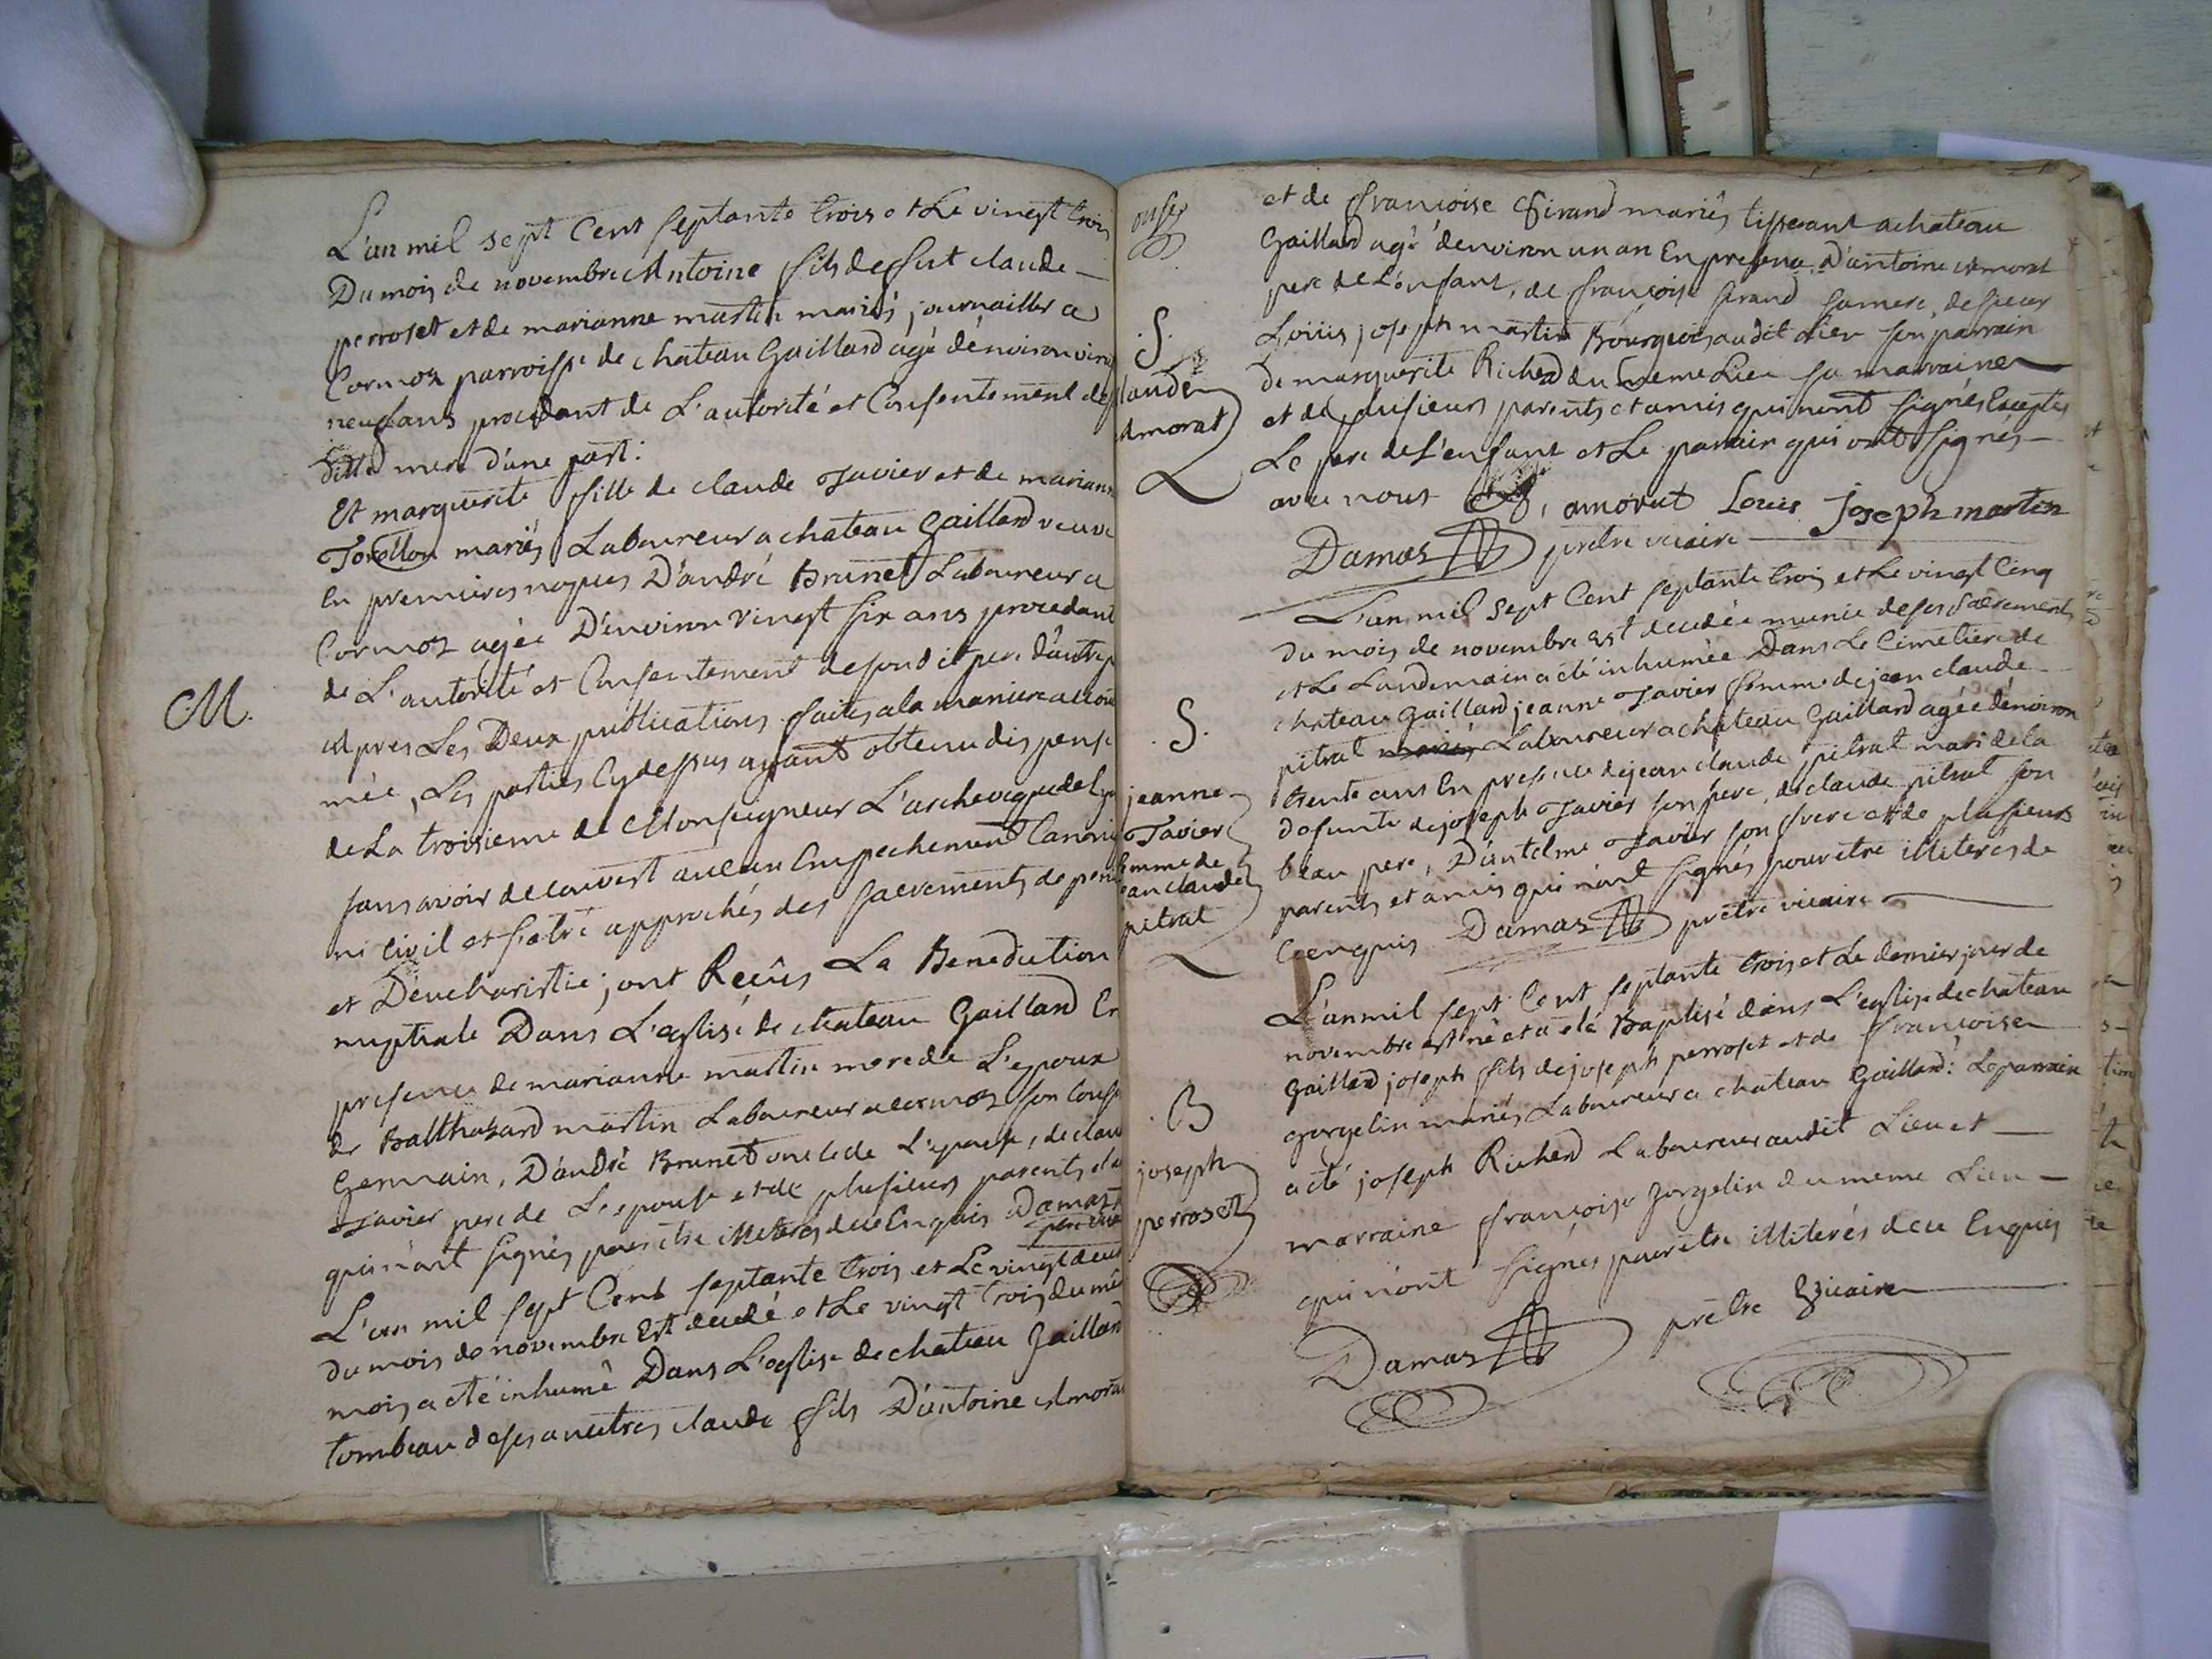 L'an mil sept Cent septante trois et Le vingt trois
Du mois de novembre Antoine fils de fut claude
perroset et de marianne martin mariés journailler a
Cormoz parroisse de chateau Gaillard agé dénviron vingt
neuf ans procedant de L'autorité et Consentement de
ditte mere d'une part:
Et marguerite fille de claude Javier et de mariann
mariés Laboureur a chateau gaillard veuve
En premieres nopces D'andré Brunet Laboureur a
Cormoz agée D'environ vingt six ans procedant
de L'autorité et Consentement de son dit pere d'autre p
Apres Les Deux publications faites a la maniere accoutu
mée, Les parties Cy dessus ayant obtenu dispense
de La troisieme de Monseigneur L'archeveque de Lyo
sans avoir decouvert aucun Empechement Canoni
ni Civil et s'etre approchés des sacrements de peni
et D'eucharistie, ont Reçûs La Benediction
nuptiale Dans L'eglise de chateau Gaillard En
presence de marianne martin mere de L'epoux
de Balthazard martin Laboureur a cormoz son Cousin
Germain, D'andré Brunet oncle de L'epouse, de clau
Javier pere de L'epouse et de plusieurs parents et a
qui n'ont signés pour etre illiterés de ce Enquis Damas
M.
L'an mil sept Cent septante trois et Le vingt deux
du mois de novembre Est decedé et Le vingt trois du mê
mois a eté inhumé Dans L'eglise de chateau Gaillard
tombeau de ses ancetres claude fils D'antoine Amorat
S.
claude
Amorat
et de françoise Girand mariés tisserant a chateau
Gaillard agé d'environ un an En presence D'antoine Amorat
pere de L'enfant, de françoise Girand sa mere, de sieur
Loüis joseph martin Bourgeois au dit Lieu son parrain
De marguerite Richerd du meme Lieu sa marraine
et de plusieurs parents et amis qui n'ont signés Exceptés
Le pere de L'enfant et Le parrain qui ont signés
avec nous amorat Louis Joseph martin
Damas prêtre vicaire
L'an mil sept Cent septante trois et Le vingt Cinq
du mois de novembre est decedée munie de ses sacrements
et Le Landemain a eté inhumée Dans Le Cimetiere de
chateau Gaillard jeanne Javier femme de jean claude
pitrat mariés Laboureur a chateau Gaillard agée dénviron
trente ans En presence de jean claude pitrat mari de la
defunte de joseph Javier son pere, de claude pitrat son
beau pere, D'antelme Javier son frere et de plusieurs
parents et amis qui n'ont signés pour etre illiterés de
Ce enquis Damas prêtre vicaire
S.
jeanne
Javier
femme de
jean claude
pitrat
L'an mil sept Cent septante trois et Le dernier jour de
novembre est né et a eté Baptisé dans L'eglise de chateau
Gaillard joseph fils de joseph perroset et de françoise
gorgelin mariés Laboureur a chateau Gaillard: Le parrain
a eté joseph Richerd Laboureur audit Lieu et
marraine françoise gorgelin du meme Lieu
qui n'ont signés pour etre illiterés de ce Enquis
Damas prêtre Vicaire
B
joseph
perroset